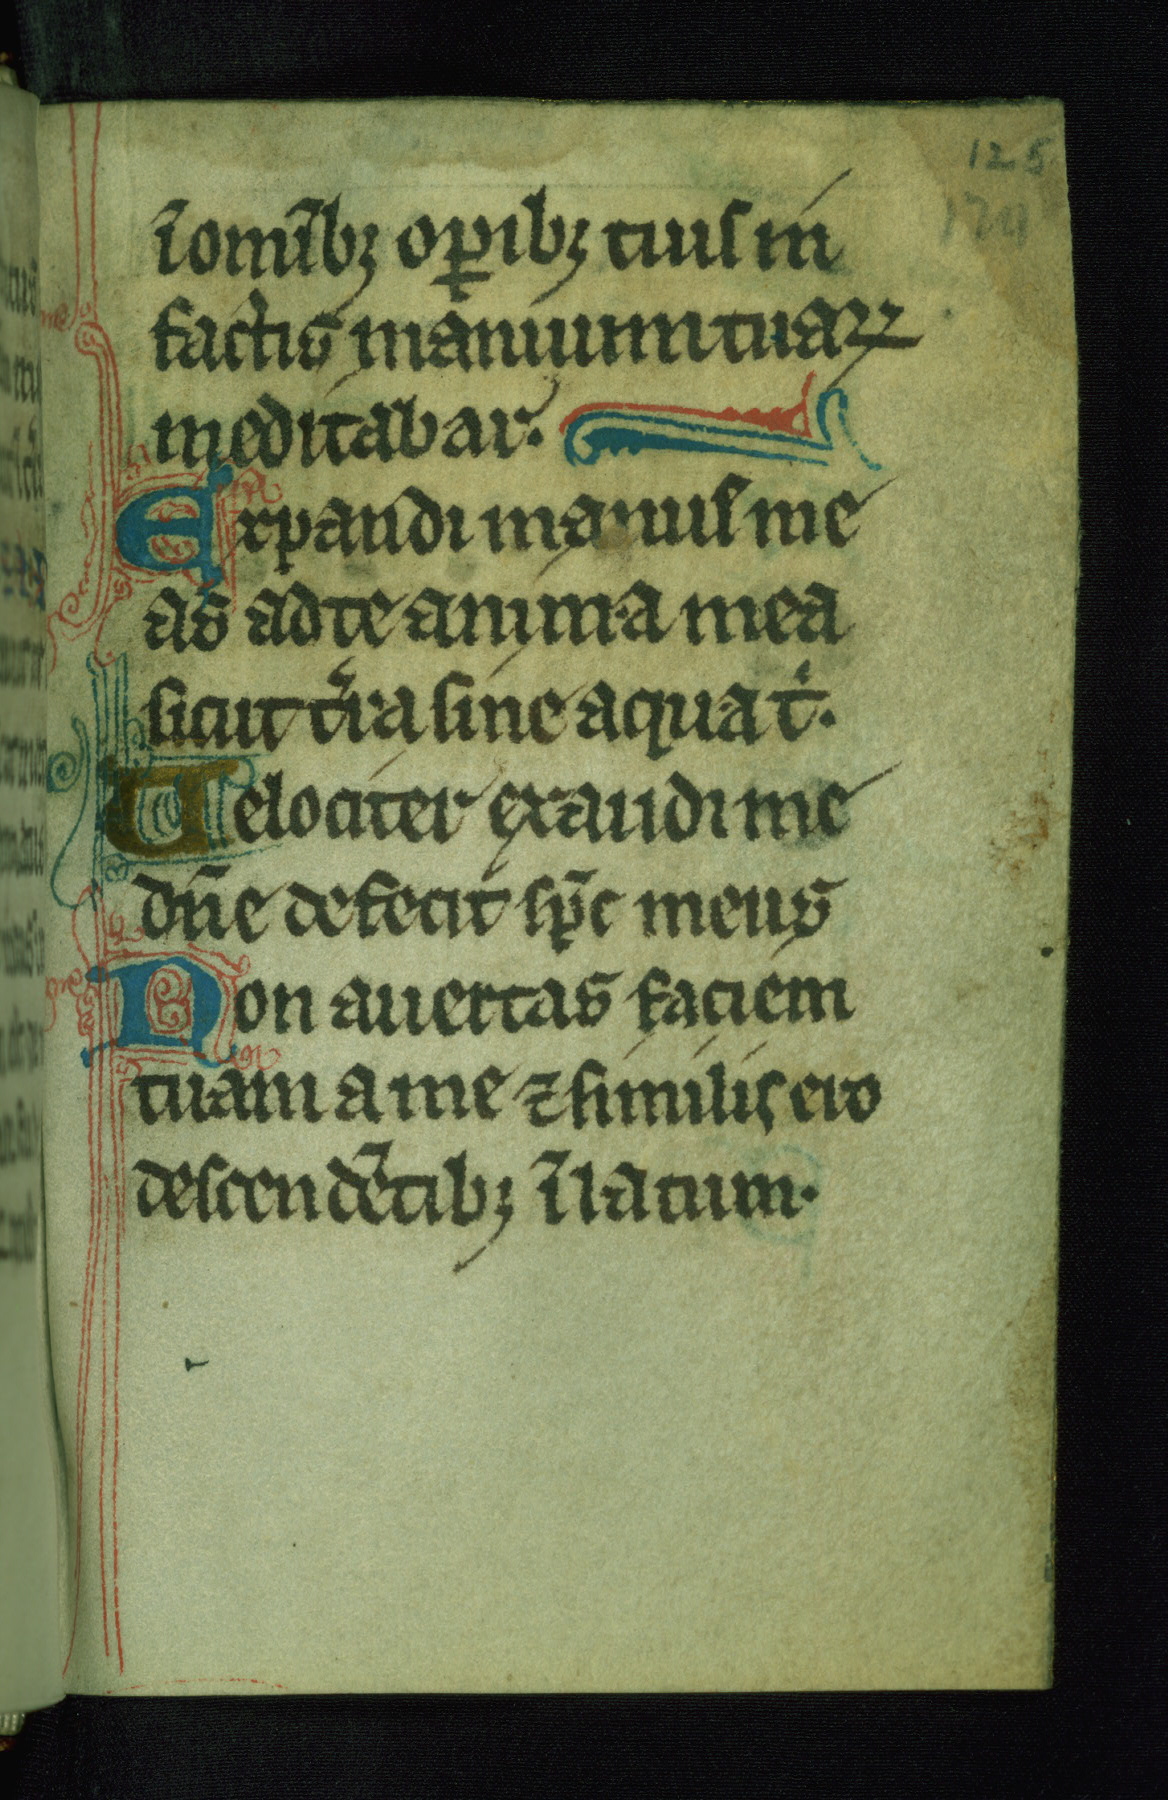 125
ı̄ om̄ıbꝫ oꝑıbꝫ tuiſ in
factis manuum tuaꝝ
meditabar.
Expandi manuſ me
as ad te anima mea
ſicut tˀra ſine aqua tˡ.
Velociter exaudi me
dn̄e defecit ſp̄c meus
Non auertas faciem
tuam a me ⁊ ſimilis ero
deſcendētibꝫ ı̄ lacum.